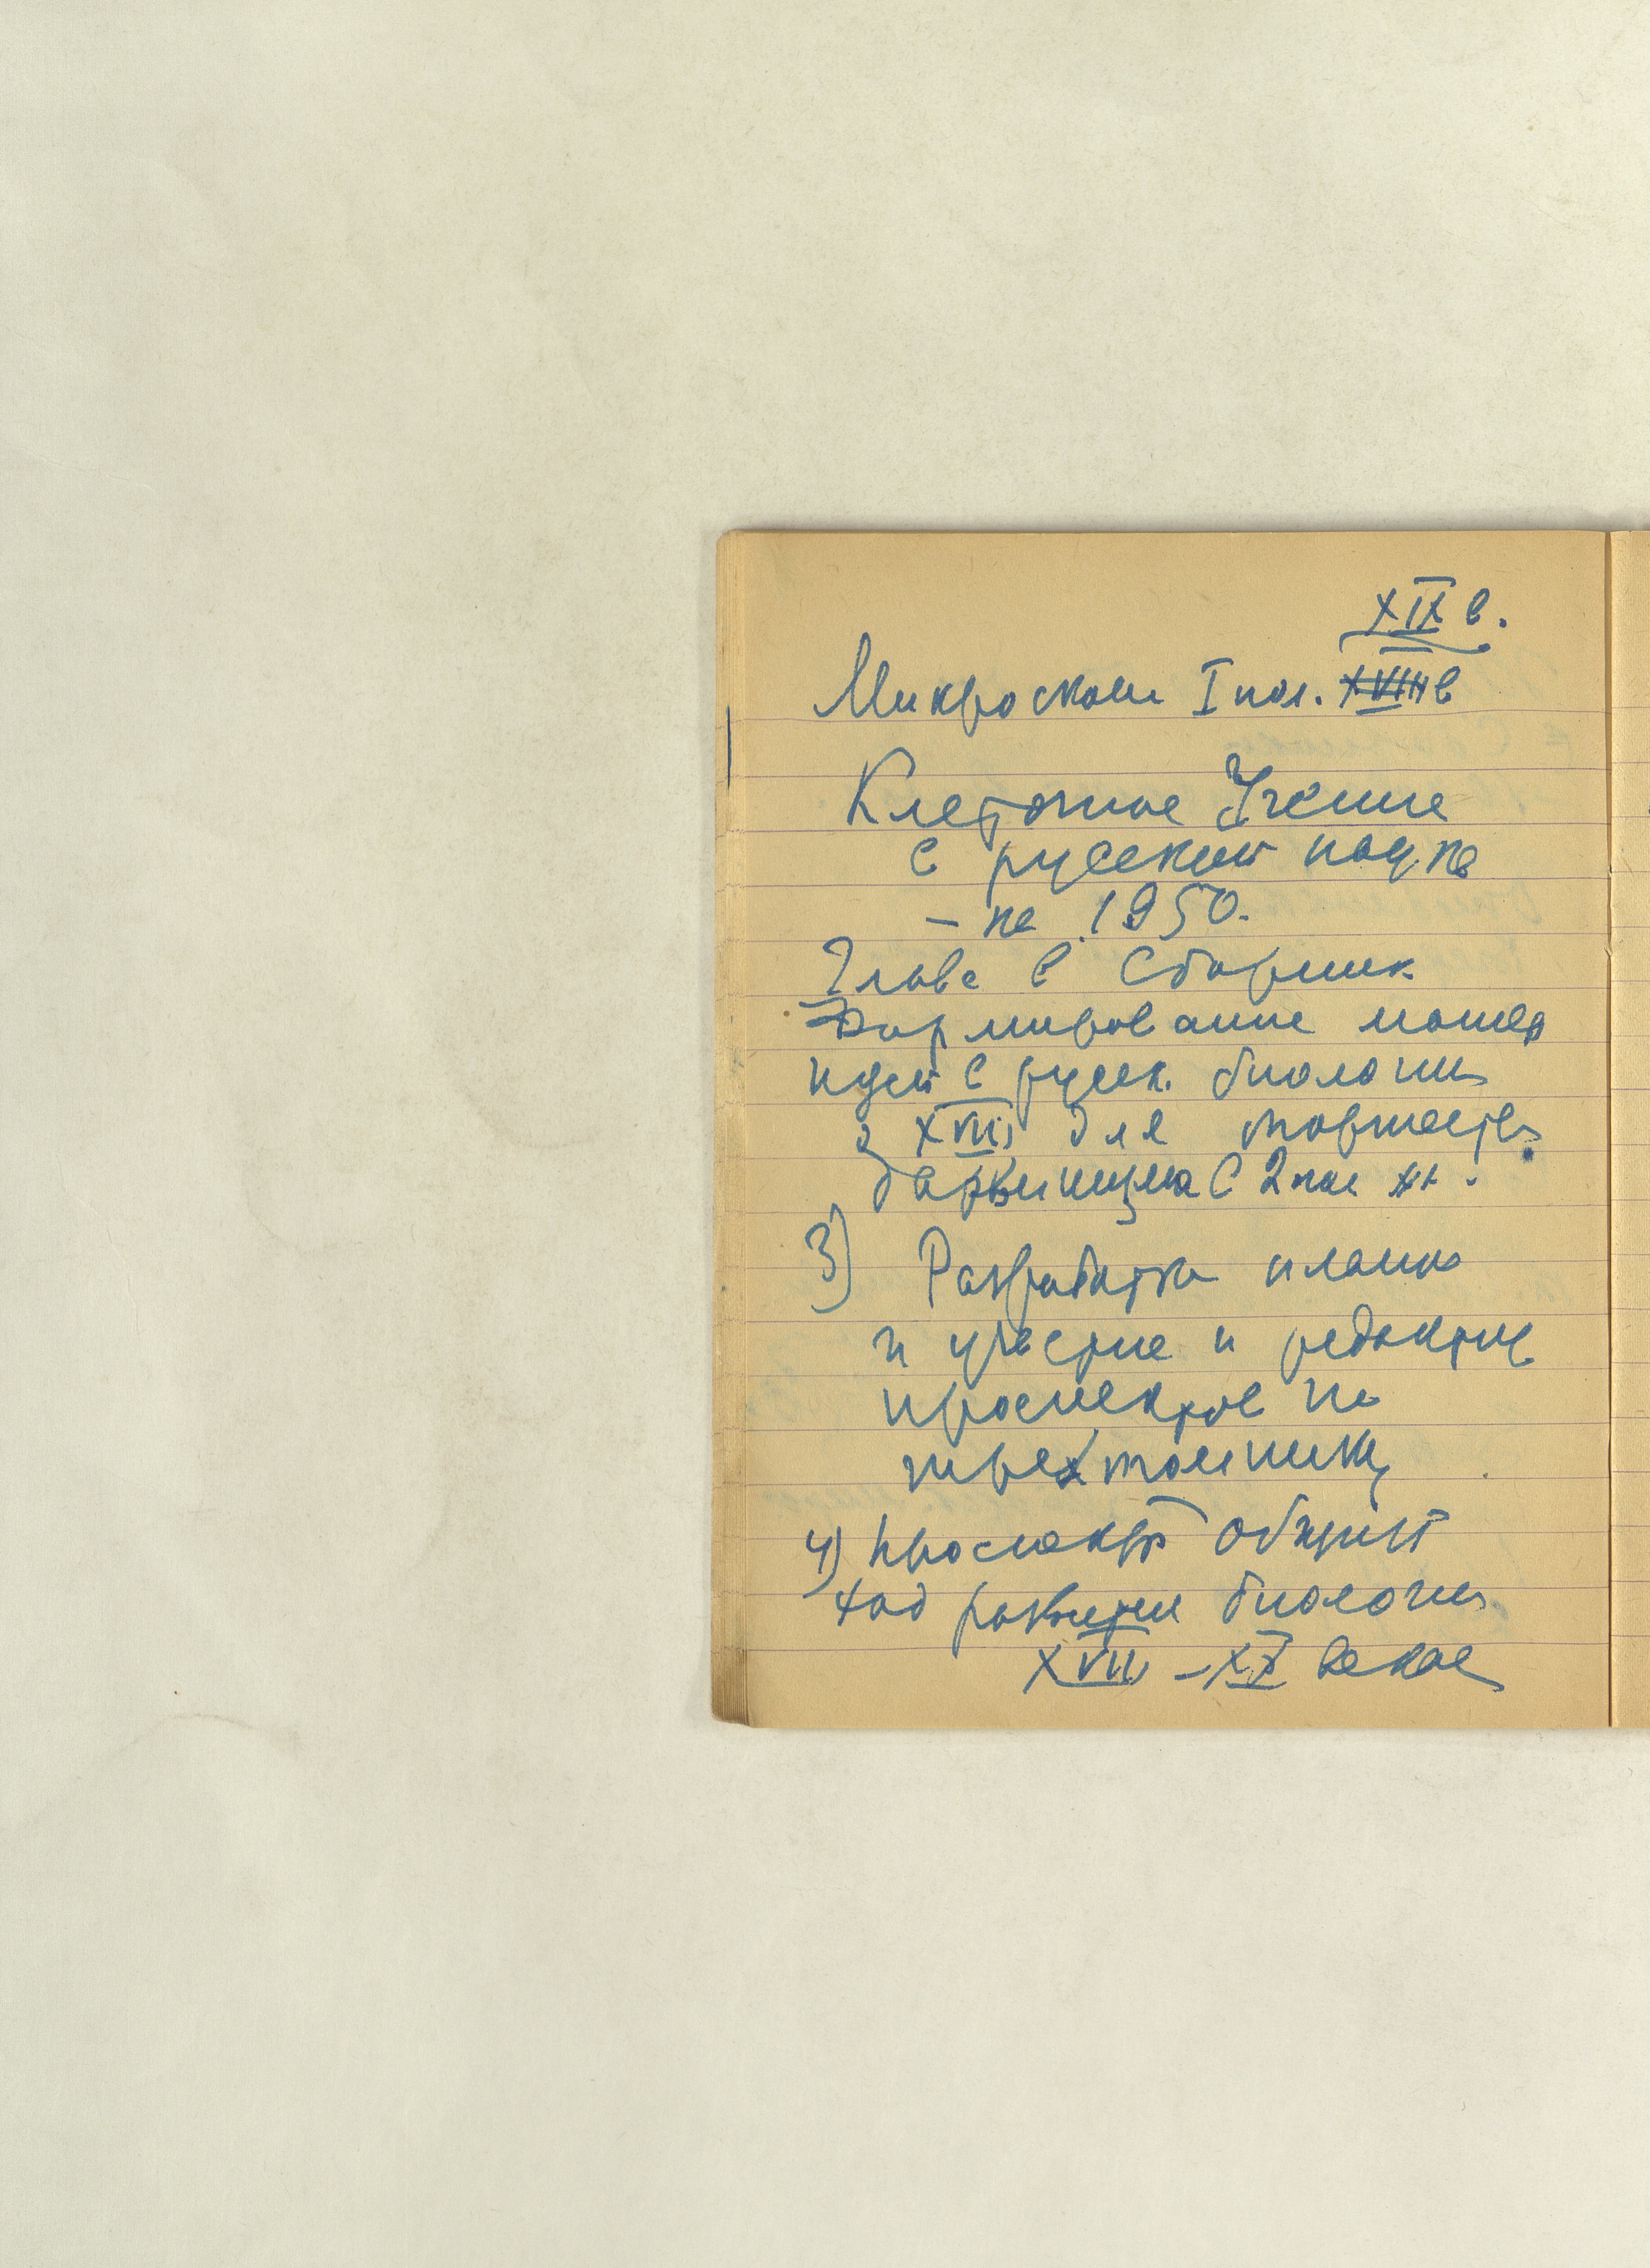 XIX в.
Микроскопы I пол. XVIII в
Клеточное Учение
в русской науке
– на 1950.
Глава в Сборник
Формирование матер
идей в русск. биологии
XVIII для торжества
дарвинизма в 2 пол
3) Разработка плана
и участие и редакция
проспектов по
трехтомнику
4) проспект Общий
ход развития биологии
XVII – XX веков